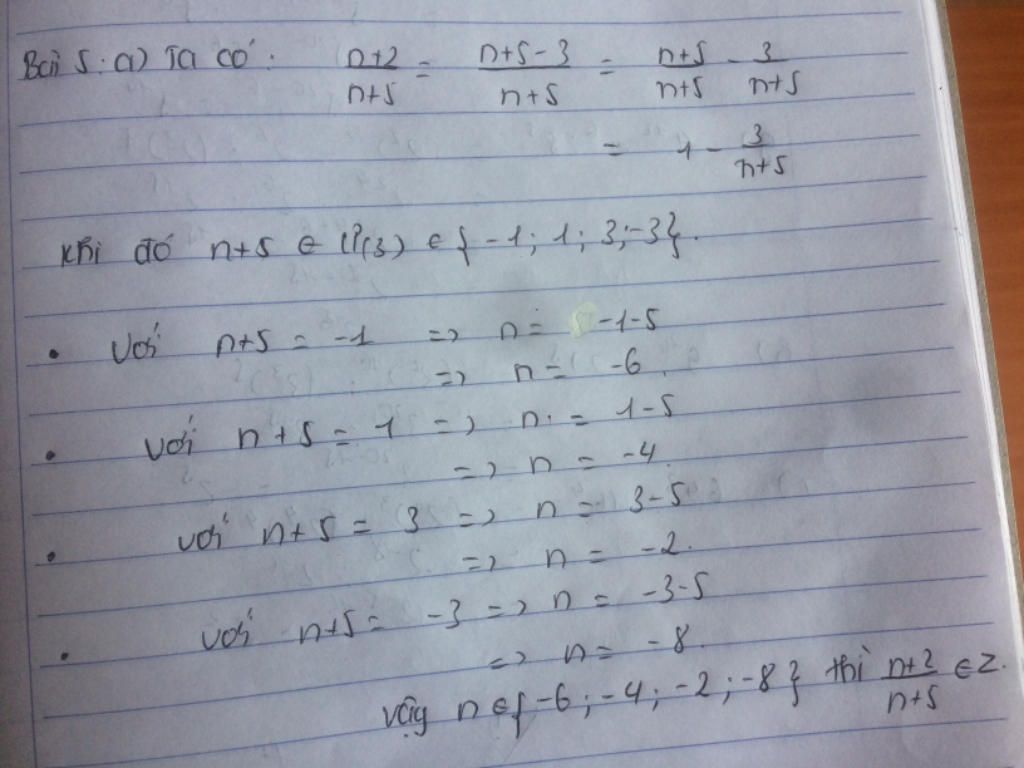 Bài 5: a) Ta có: \frac{n+2}{n+5} = \frac{n+5-3}{n+5} = \frac{n+5}{n+5} - \frac{3}{n+5}
= 1 - \frac{3}{n+5}
Khi đó n+5 ∈ Ư(3) ∈ { -1; 1; 3; -3}.
• Với n+5 = -1 => n = -1-5
=> n = -6.
• Với n+5 = 1 => n = 1-5
=> n = -4.
• với n+5 = 3 => n = 3-5
=> n = -2.
• với n+5 = -3 => n = -3-5
=> n = -8.
vậy n ∈ { -6 ; -4 ; -2 ; -8 } thì \frac{n+2}{n+5} ∈ Z.